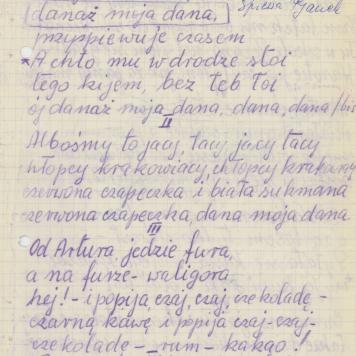 danaż moja dana,
Śpiewa Janek
przyśpiewuje czasem
*A chto mu w drodze stoi
tego kijem, bez łeb łoi
oj danaż moja dana, dana, dana /bis
II
Albośmy to jacy tacy jacy tacy
chłopcy krakowiacy, chłopcy krakowiacy
czerwona czapeczka i biała sukmana
czerwona czapeczka, dana moja dana
III
Od Artura jedzie fura,
a na furze - waligóra,
hej! - i popija czaj, czaj, czekoladę -
czarną kawę i popija czaj - czaj -
czekoladę - rum - kakao!